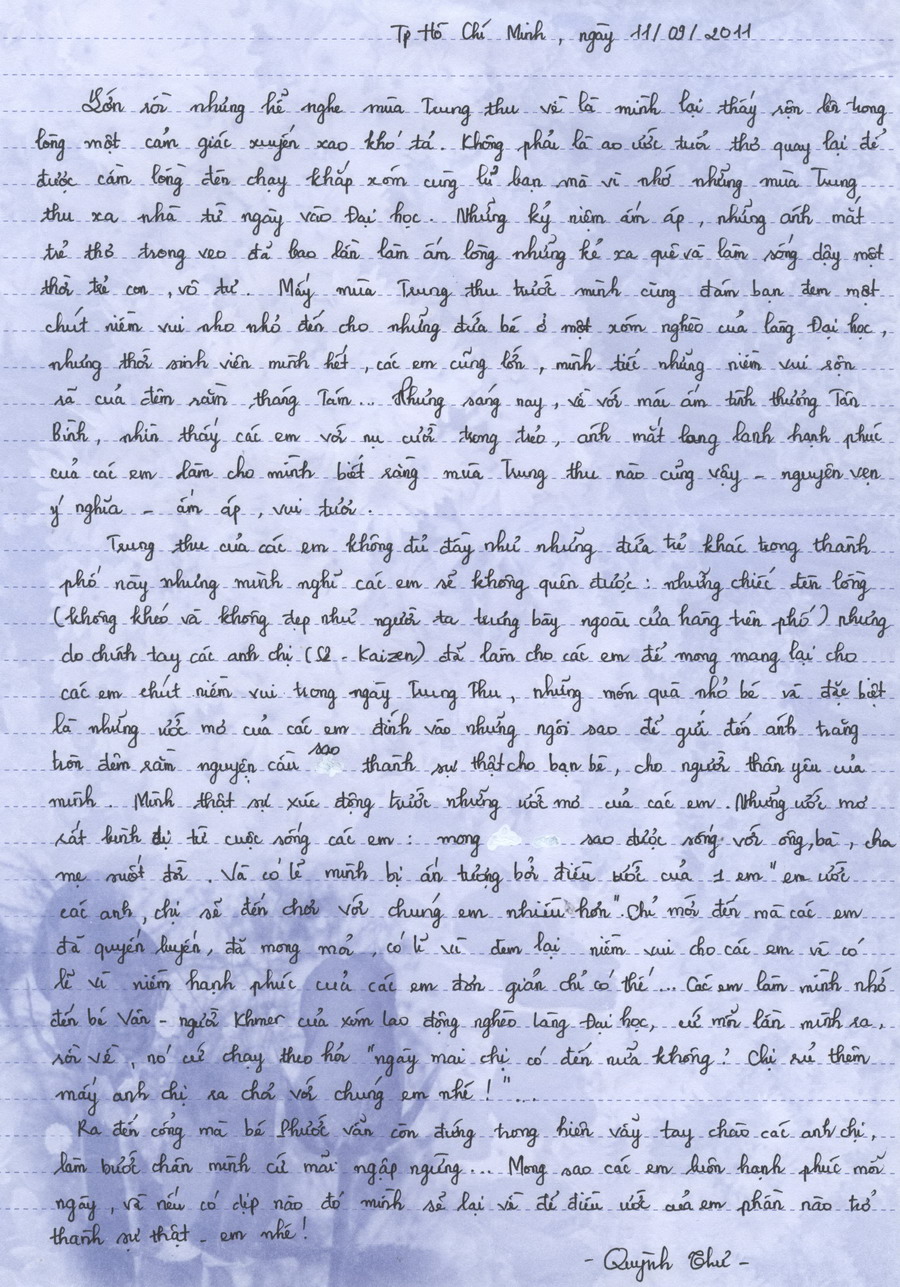 Tp Hồ Chí Minh, ngày 11/09/2011
Lớn rồi nhưng hễ nghe mùa Trung thu về là mình lại thấy rộn lên trong
lòng một cảm giác xuyến xao khó tả. Không phải là ao ước tuổi thơ quay lại để
được cầm lồng đèn chạy khắp xóm cùng lũ bạn mà vì nhớ những mùa Trung
thu xa nhà từ ngày vào Đại học. Những kỷ niệm ấm áp, những ánh mắt
trẻ thơ trong veo đã bao lần làm ấm lòng những kẻ xa quê và làm sống dậy một
thời trẻ con, vô tư. Mấy mùa Trung thu trước mình cùng đám bạn đem một
chút niềm vui nho nhỏ đến cho những đứa bé ở một xóm nghèo của làng Đại học,
nhưng thời sinh viên mình hết, các em cũng lớn, mình tiếc những niềm vui rộn
rã của đêm rằm tháng Tám... Nhưng sáng nay, về với mái ấm tình thương Tân
Bình, nhìn thấy các em với nụ cười trong trẻo, ánh mắt long lanh hạnh phúc
của các em làm cho mình biết rằng mùa Trung thu nào cũng vậy - nguyên vẹn
ý nghĩa - ấm áp, vui tươi.
Trung thu của các em không đủ đầy như những đứa trẻ khác trong thành
phố này nhưng mình nghĩ các em sẽ không quên được: những chiếc đèn lồng
(không khéo và không đẹp như người ta trưng bày ngoài cửa hàng trên phố) nhưng
do chính tay các anh chị (Ω - Kaizen) đã làm cho các em để mong mang lại cho
các em chút niềm vui trong ngày Trung Thu, những món quà nhỏ bé và đặc biệt
là những ước mơ của các em đính vào những ngôi sao để gửi đến ánh trăng
tròn đêm rằm nguyện cầu sao thành sự thật cho bạn bè, cho người thân yêu của
mình. Mình thật sự xúc động trước những ước mơ của các em. Những ước mơ
rất bình dị từ cuộc sống các em: mong sao được sống với ông, bà, cha
mẹ suốt đời. Và có lẽ mình bị ấn tượng bởi điều ước của 1 em "em ước
các anh, chị sẽ đến chơi với chúng em nhiều hơn". Chỉ mới đến mà các em
đã quyến luyến, đã mong mỏi, có lẽ vì đem lại niềm vui cho các em và có
lẽ vì niềm hạnh phúc của các em đơn giản chỉ có thế... Các em làm mình nhớ
đến bé Vân - người Khmer của xóm lao động nghèo làng Đại học, cứ mỗi lần mình ra,
rồi về, nó cứ chạy theo hỏi "ngày mai chị có đến nữa không? Chị rủ thêm
mấy anh chị ra chơi với chúng em nhé!"...
Ra đến cổng mà bé Phước vẫn còn đứng trong hiên vẫy tay chào các anh chị,
làm bước chân mình cứ mãi ngập ngừng... Mong sao các em luôn hạnh phúc mỗi
ngày, và nếu có dịp nào đó mình sẽ lại về để điều ước của em phần nào trở
thành sự thật - em nhé!
- Quỳnh Thư -